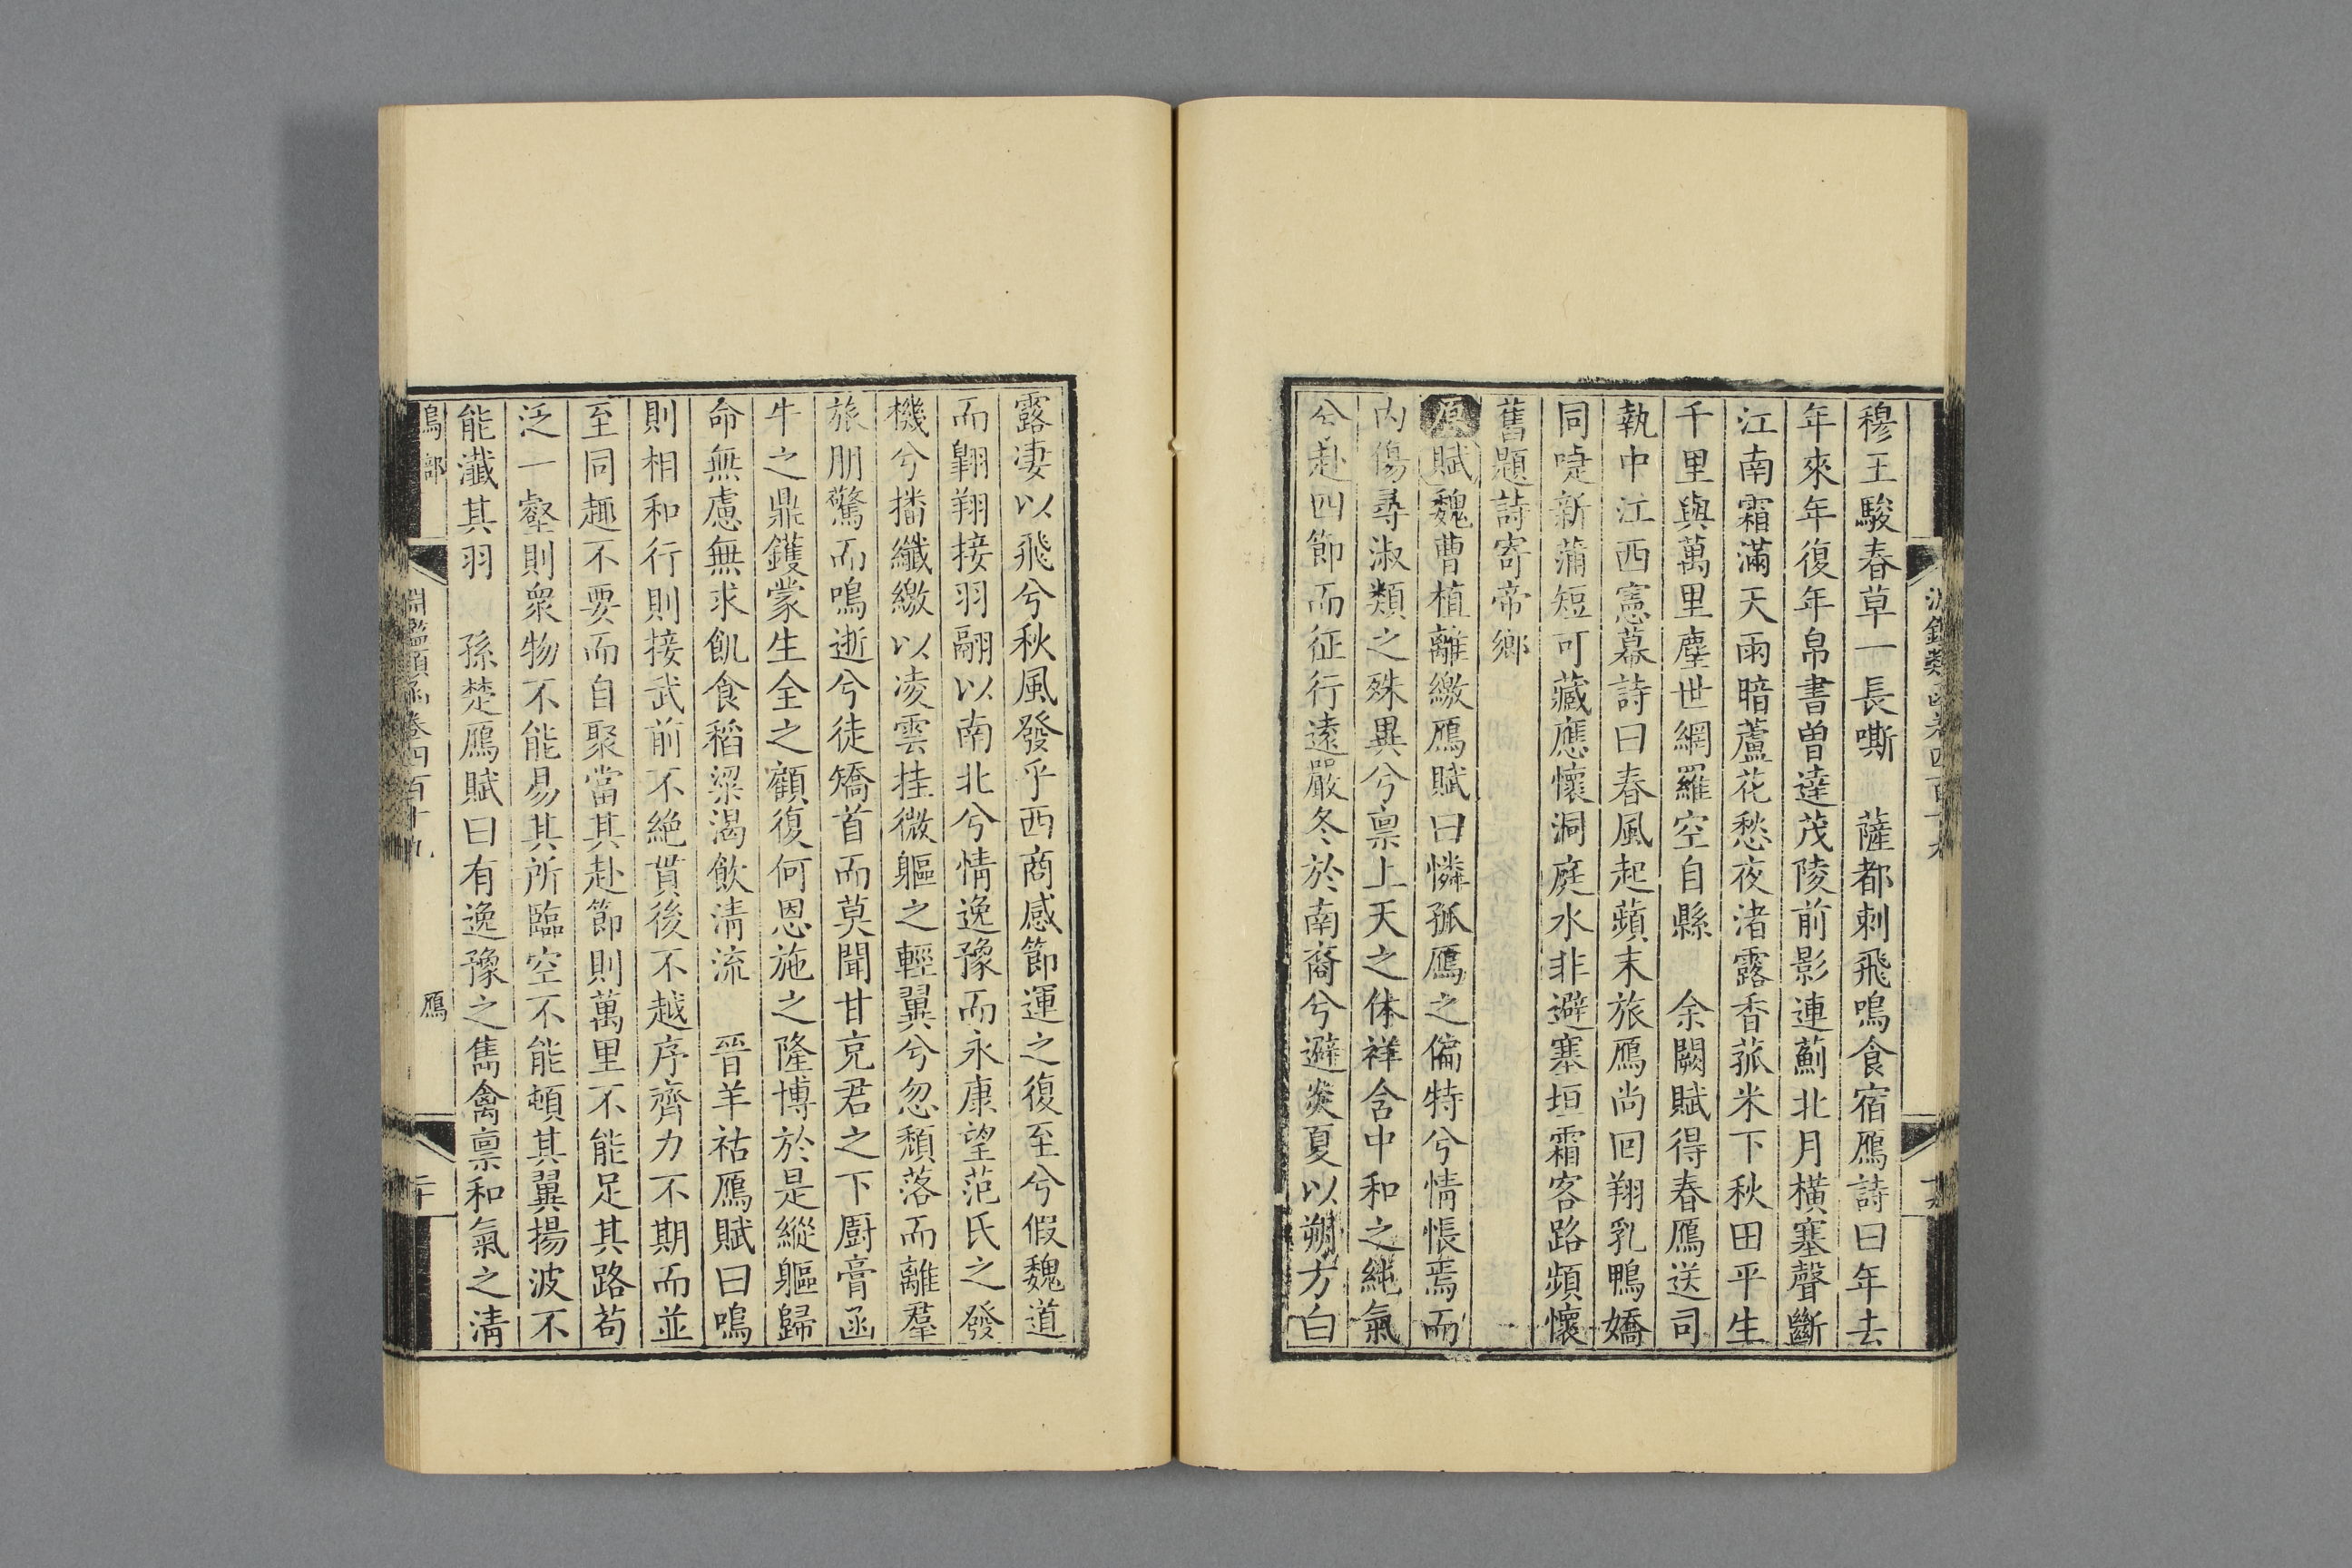 穆王駿春草一長嘶　薩都剌飛鳴食宿鴈詩曰年去
年來年復年帛書曽達茂陵前影連薊北月橫塞聲斷
江南霜滿天雨暗蘆花愁夜渚露香菰米下秋田平生
千里與萬里塵世網羅空自縣　余闕賦得春鴈送司
執中江西憲幕詩曰春風起蘋末旅鴈尚回翔乳鴨嬌
同唼新蒲短可藏應懷洞庭水非避塞垣霜客路頻懷
舊題詩寄帝鄉
原賦魏曹植離繳鴈賦曰憐孤鴈之偏特兮情悵焉而
内傷尋淑類之殊異兮禀上天之休祥含中和之純氣
兮赴四節而征行遠嚴冬於南裔兮避炎夏以朔方白
露凄以飛兮秋風發乎西商感節運之復至兮假魏道
而翺翔接羽翮以南北兮情逸豫而永康望范氏之發
機兮播纖繳以凌雲挂微軀之輕翼兮忽頹落而離羣
旅朋驚而鳴逝兮徒矯首而莫聞甘充君之下厨膏函
牛之鼎鑊蒙生全之顧復何恩施之隆博於是縱軀歸
命無慮無求飢食稻粱渴飲清流　晉羊祜鴈賦曰鳴
則相和行則接武前不絶貫後不越序齊力不期而並
至同趣不要而自聚當其赴節則萬里不能足其路苟
泛一壑則衆物不能易其所臨空不能頓其翼揚波不
能瀸其羽　孫楚鴈賦曰有逸豫之雋禽禀和氣之清
鳥部　鴈
淵鑑類函卷四百十九
二十